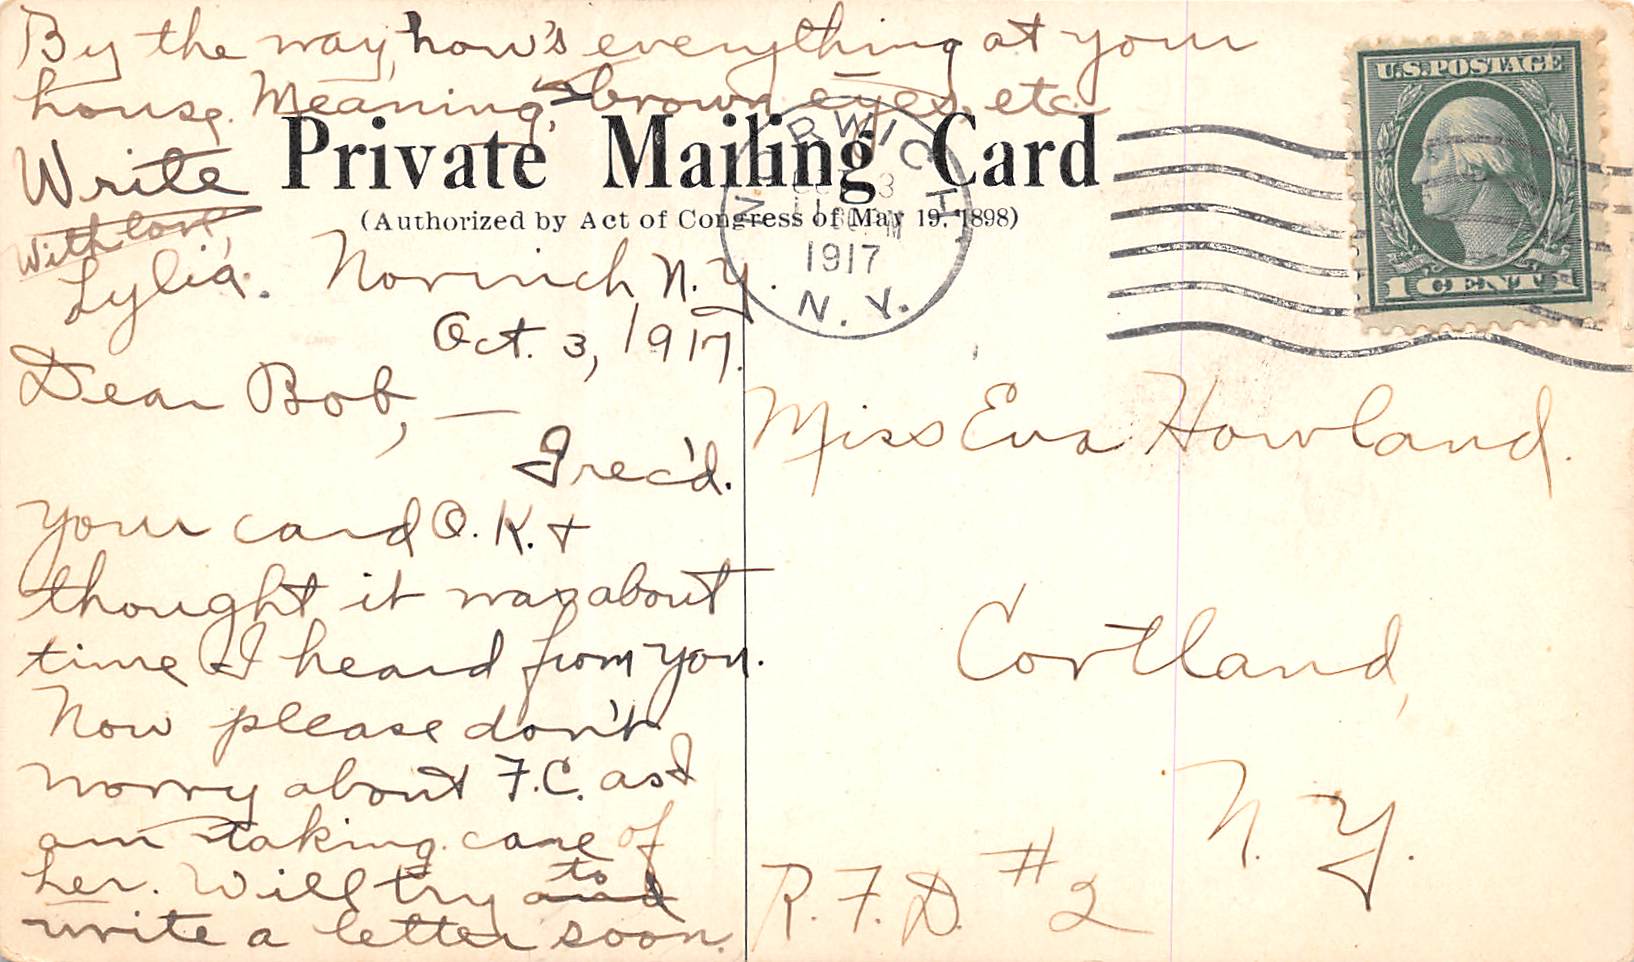 By the way, how's everything at your
house. Meaning, brown eyes, etc.
Write
With love,
Lylia.
Private Mailing Card
(Authorized by Act of Congress of May 19, 1898)
Norwich N.Y.
Oct. 3, 1917.
Dear Bob, —
I rec'd.
your card O.K. +
thought it was about
time I heard from you.
Now please don't
worry about F.C. as I
am taking care of
her. Will try to
write a letter soon.
NORWICH
1917
N.Y.
U.S. POSTAGE
1 CENT 1
Miss Eva Howland.
Cortland,
N. Y.
R. F. D. #2